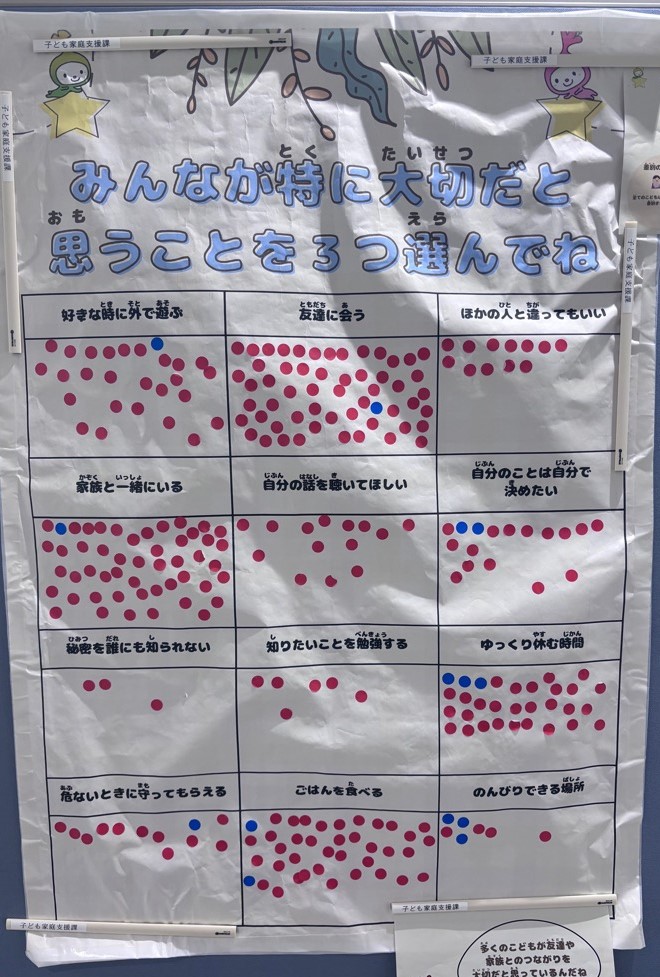 子ども家庭支援課
子ども家庭支援課
子ども家庭支援課
みんなが特に大切だと
思うことを3つ選んでね
子ども家庭支援課
好きな時に外で遊ぶ
友達に会う
ほかの人と違ってもいい
家族と一緒にいる
自分の話を聴いてほしい
自分のことは自分で
決めたい
秘密を誰にも知られない
知りたいことを勉強する
ゆっくり休む時間
危ないときに守ってもらえる
ごはんを食べる
のんびりできる場所
子ども家庭支援課
子ども家庭支援課
多くのこどもが友達や
家族とのつながりを
大切だと思っているんだね